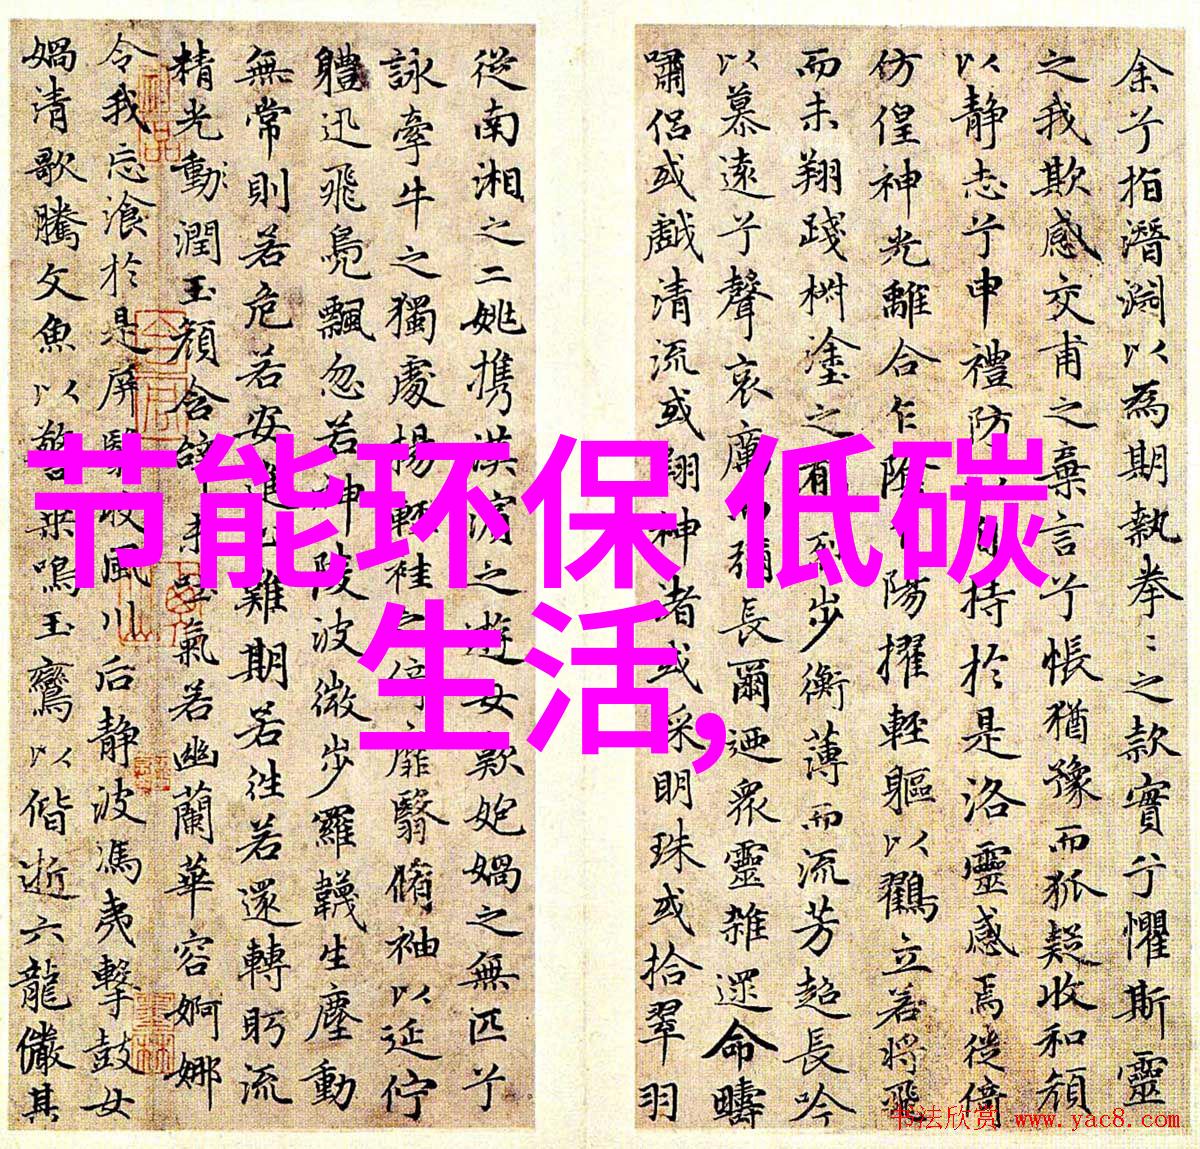 节能环保 低碳
生活,
余兮拍潛淵以為期執拳〻之款實兮懼斯靈
之我欺感交甫之棄言兮悵猶豫而狐疑收和顔
以静志兮申禮防以自持於是洛靈感焉徙倚
仿偟神光離合乍陰乍陽擢輕軀以鶴立若將飛
而未翔踐椒塗之郁烈步衡薄而流芳超長吟
以慕遠兮聲哀厲而彌長爾迺衆靈雜遝命疇
嘯侣或戲清流或翔神渚或采明珠或拾翠羽
從南湘之二姚攜漢濱之遊女歎匏媧之無匹兮
詠牽牛之獨處揚輕袿之猗靡翳脩袖以延佇
體迅飛鳧飄忽若神陵波微步羅韈生塵動
無常則若危若安進止難期若往若還轉眄流
精光動潤玉顔含辭未吐氣若幽蘭華容婀娜
令我忘飡於是屏翳收風川后静波馮夷擊鼓女
媧清歌騰文魚以警乘鳴玉鸞以偕逝六龍儼其
书法欣赏 www.yac8.com